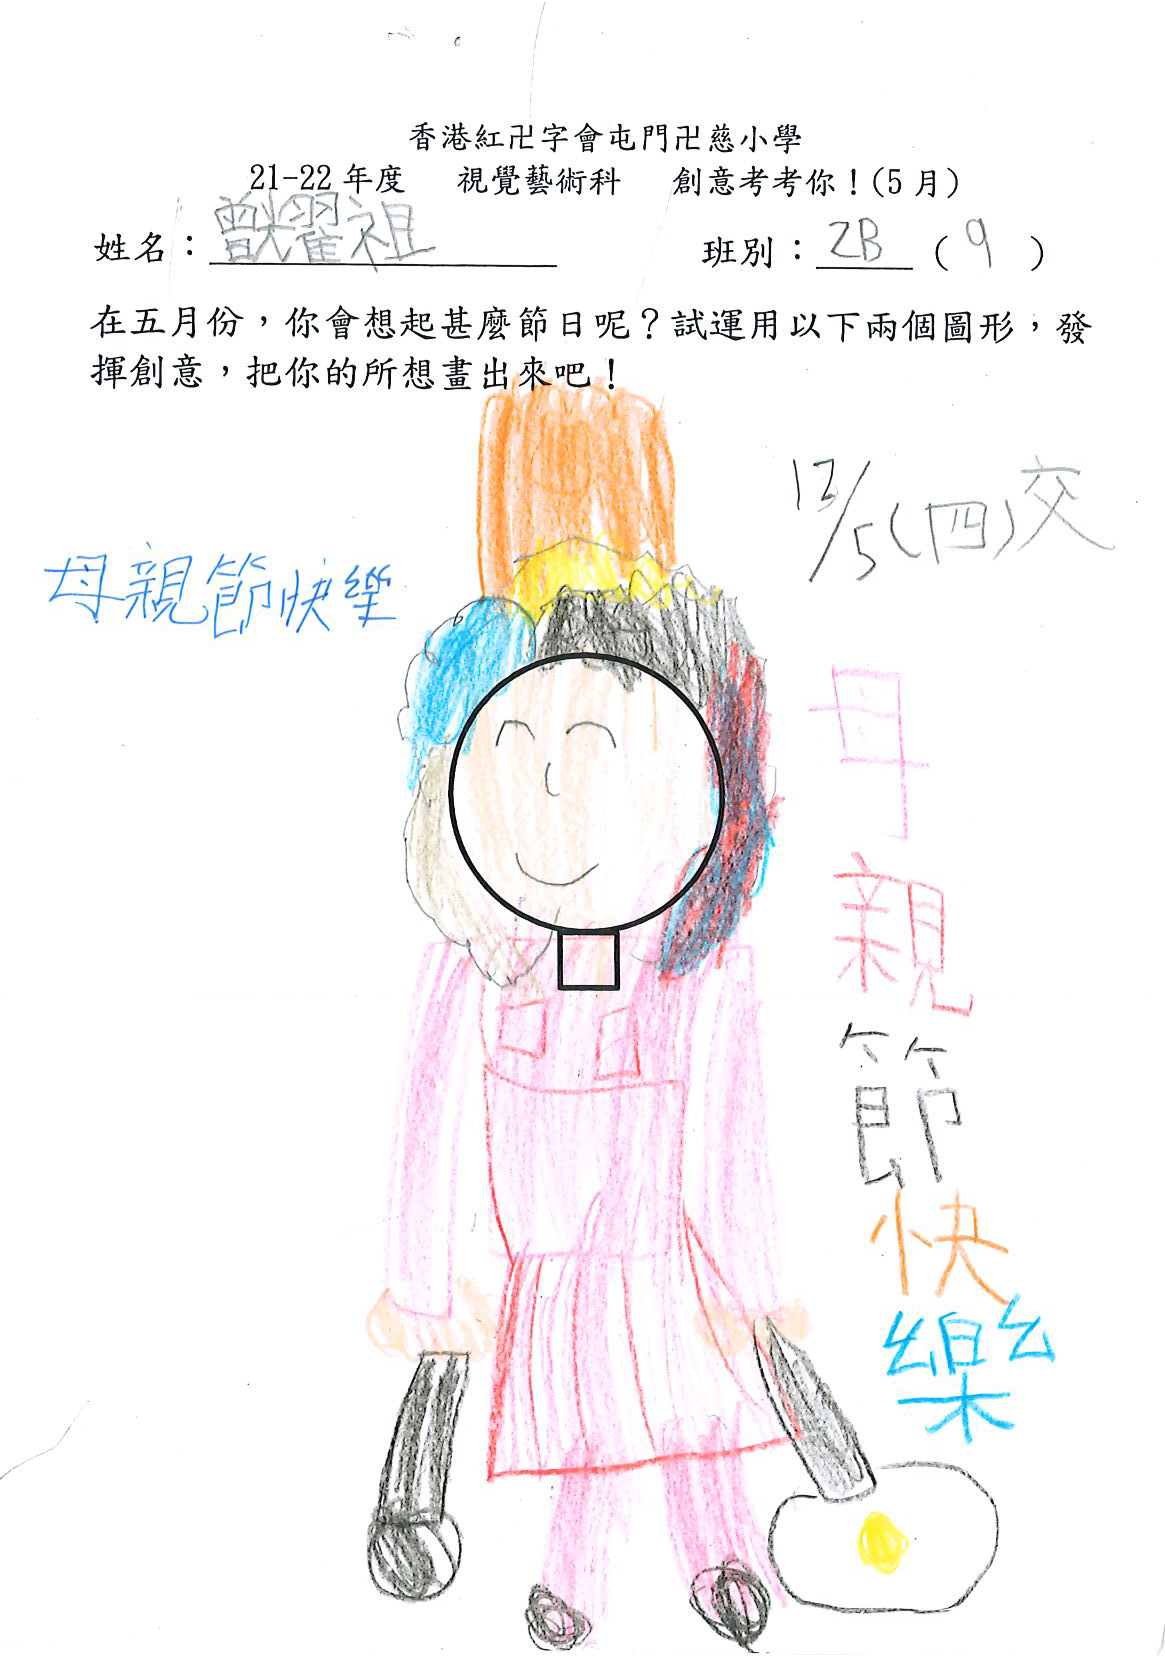 香港紅卍字會屯門卍慈小學
21-22 年度 視覺藝術科 創意考考你！(5 月)
姓名：曾耀祖 班別：2B (9)
在五月份，你會想起甚麼節日呢？試運用以下兩個圖形，發
揮創意，把你的所想畫出來吧！
12/5(四)交
母親節快樂
母親節快樂